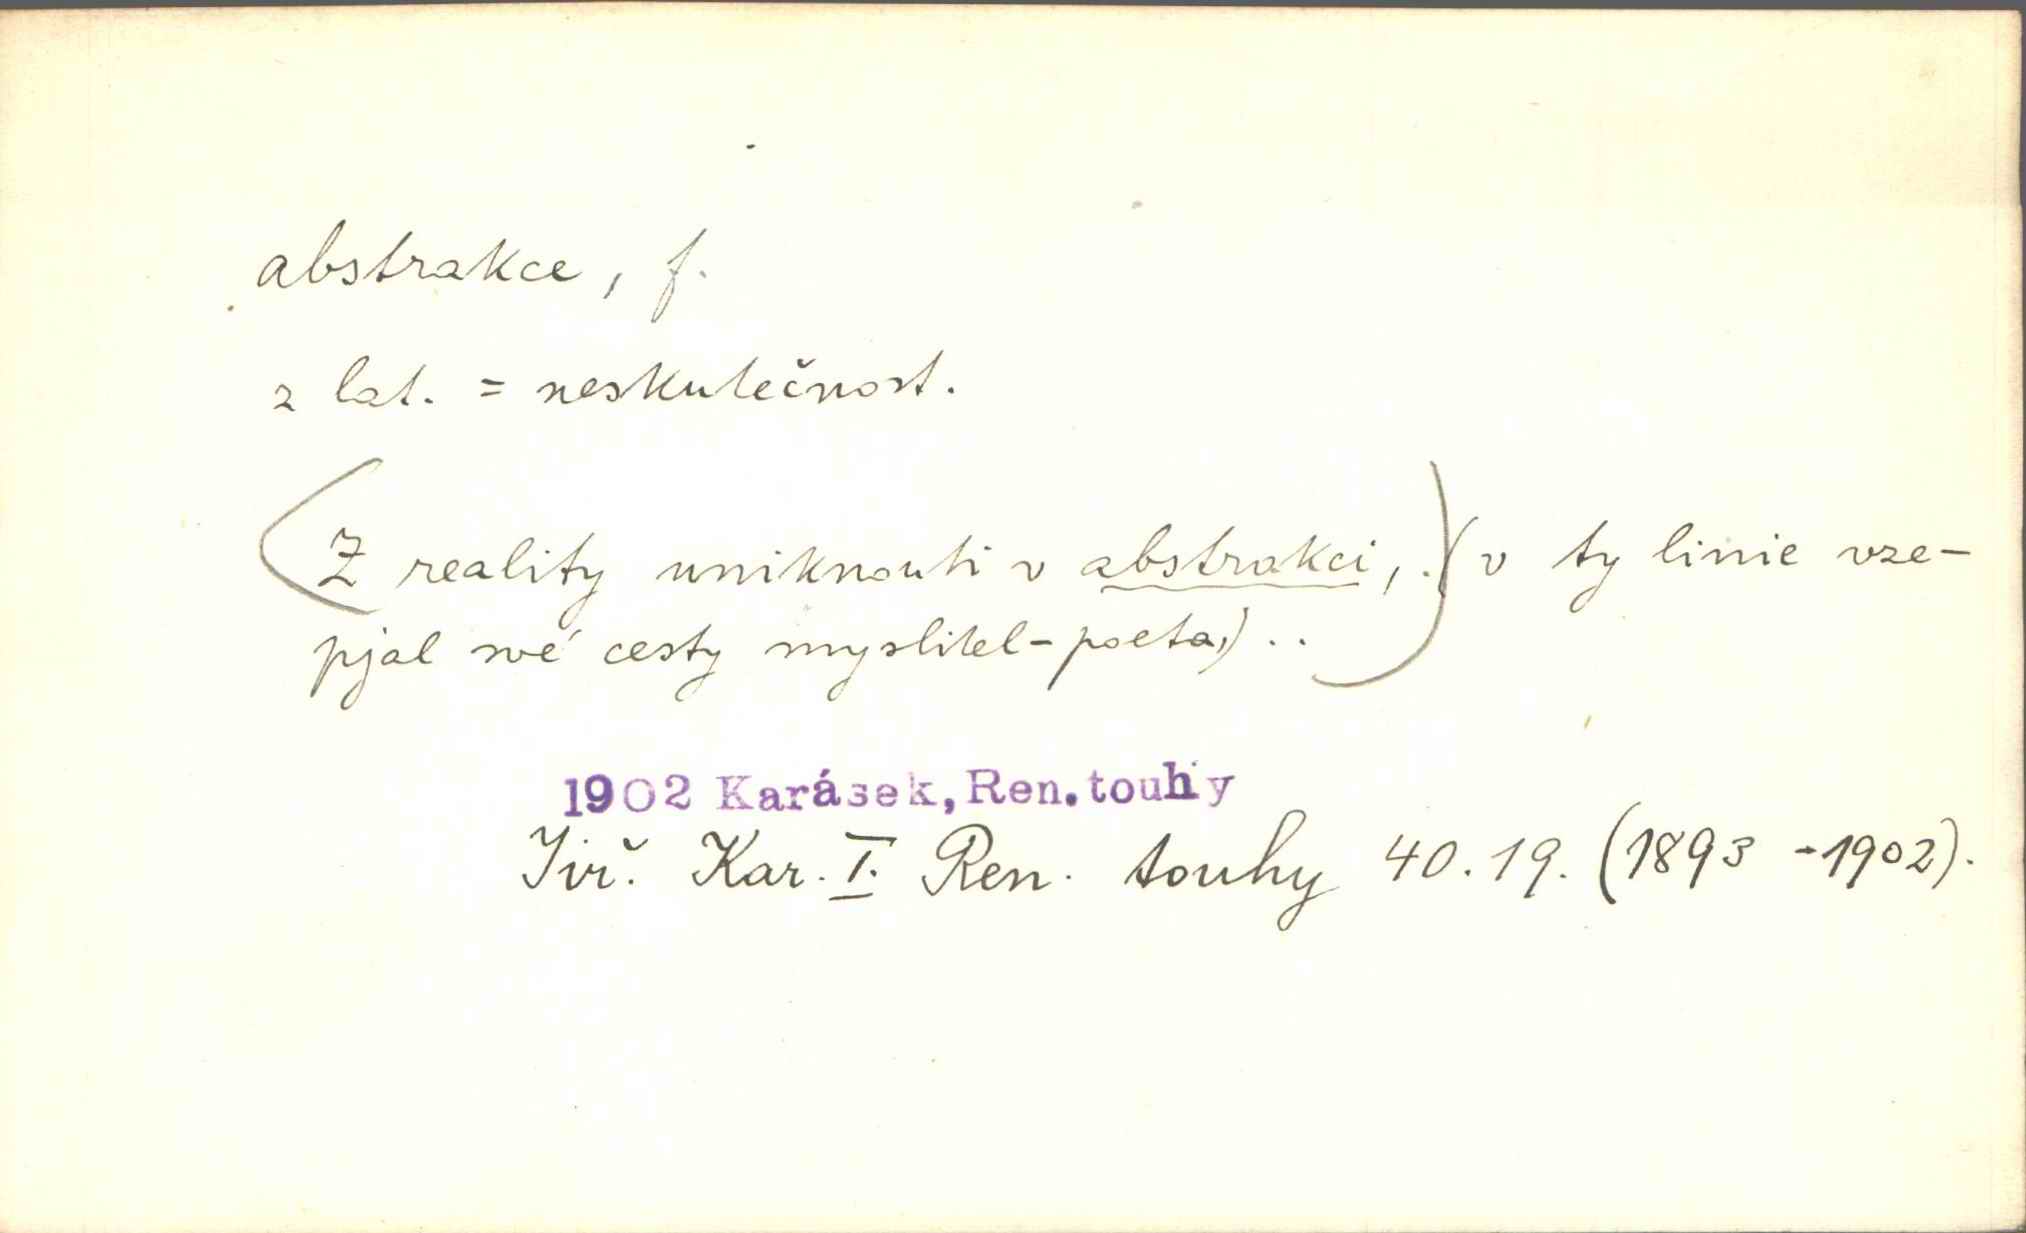 abstrakce, f.
z lat. = neskutečnost.
(Z reality uniknouti v abstrakci, .)(v ty linie vze-
pjal své cesty myslitel-poeta,) ..
1902 Karásek, Ren. touhy
Jiř. Kar. I. Ren. touhy 40.19. (1893 -1902).